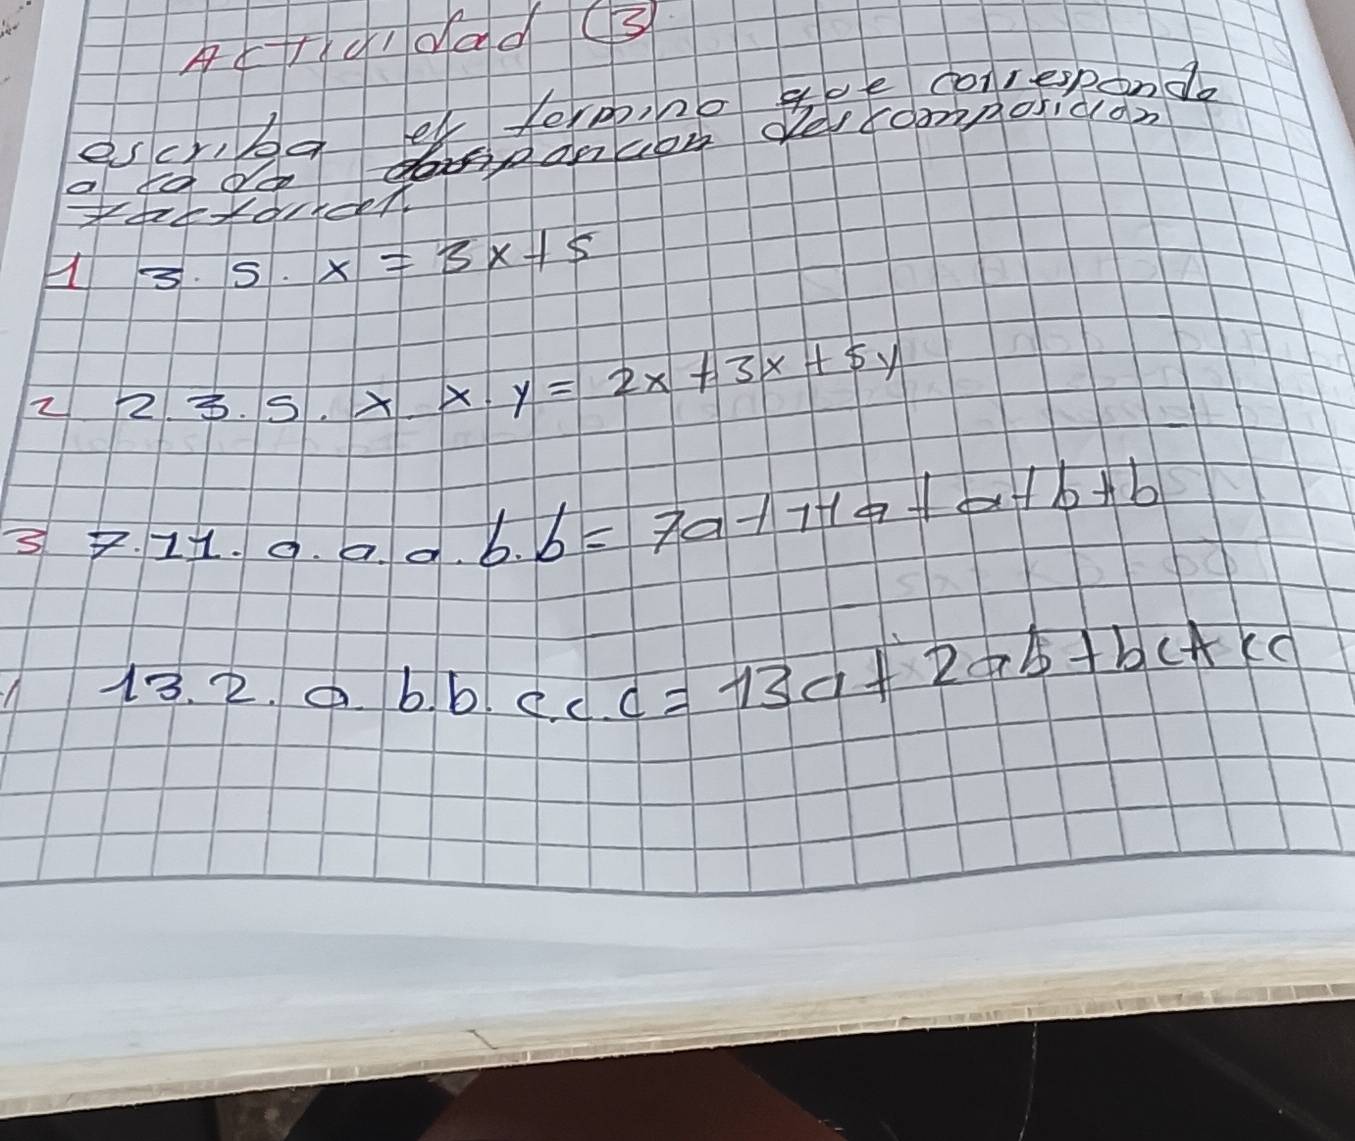 Actividad (3)
escriba el termino que corresponde
a cada descomposicion
factorice.
1 3. 5. x = 3x+5
2 2. 3. 5. x x. y = 2x + 3x + 5y
3 7. 11. a. a. a. b. b = 7a + 11a + a + b + b
13. 2. a. b. b. c. c. c = 13a + 2ab + bc + cc